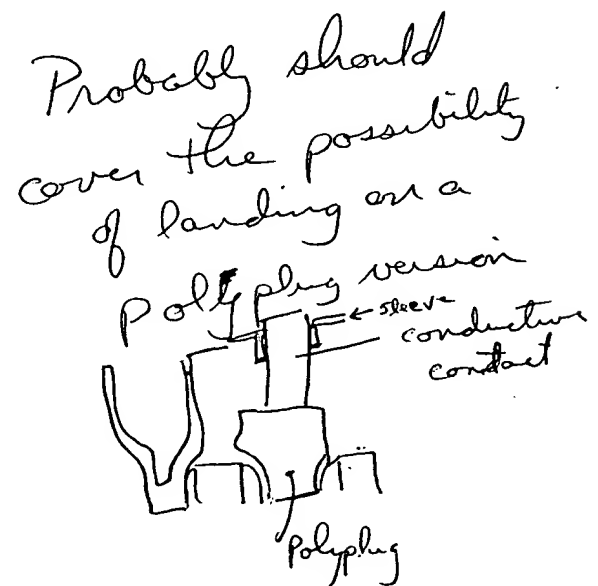 Probably should
cover the possibility
of landing on a
polyplug version
sleeve
conductive
contact
polyplug